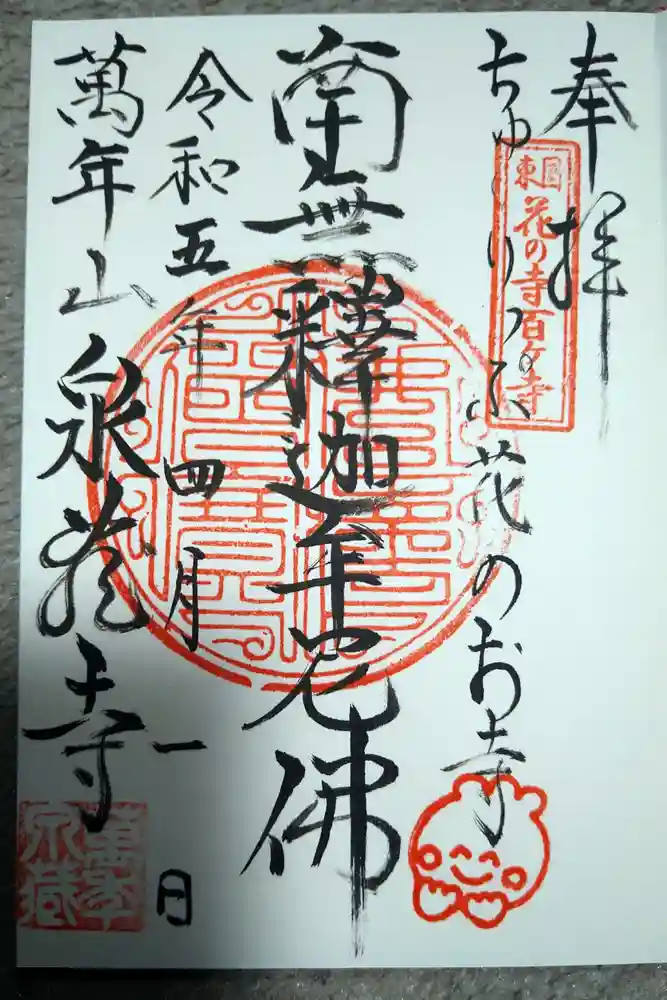 奉拝
東国花の寺百ヶ寺
ちゅーりっぷ花のお寺
南無釋迦牟尼佛
令和五年四月一日
萬年山泉蔵寺